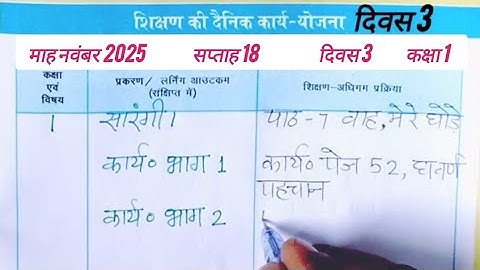 शिक्षण की दैनिक कार्य-योजना दिवस 3
माह नवंबर 2025 सप्ताह 18 दिवस 3 कक्षा 1
कक्षा एवं विषय
प्रकरण/ लर्निंग आउटकम (संक्षिप्त में)
शिक्षण-अधिगम प्रक्रिया
1 सारंगी 1 पाठ-7 वाह, मेरे घोड़े
कार्य॰ भाग 1 कार्य॰ पेज 52, घ वर्ण
पहचान
कार्य॰ भाग 2